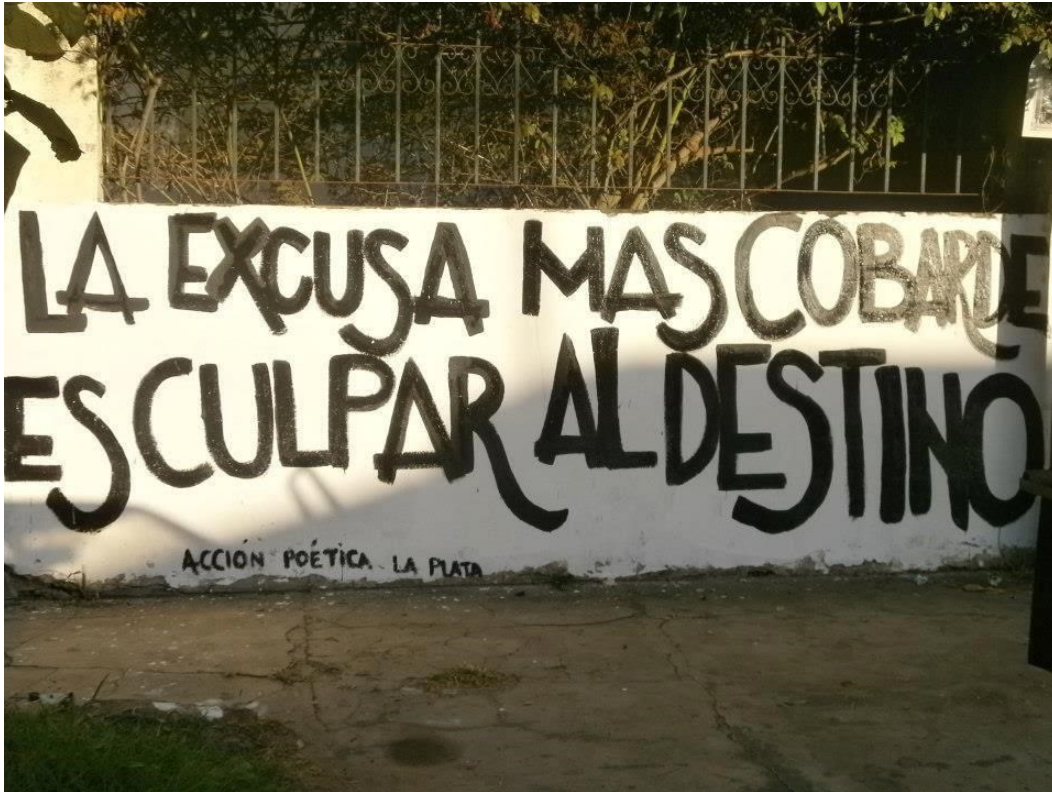 LA EXCUSA MAS COBARDE
ES CULPAR AL DESTINO
ACCIÓN POÉTICA LA PLATA